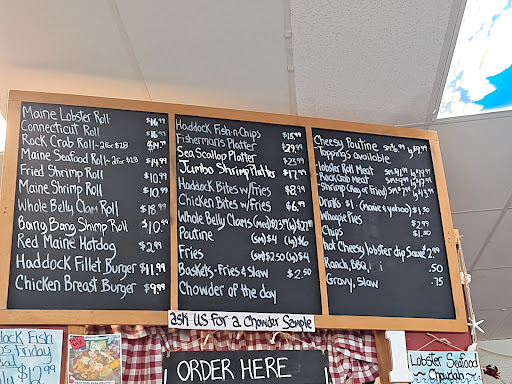 Maine Lobster Roll $16.99
Connecticut Roll $16.99
Rock Crab Roll - 2 for $28 $14.99
Maine Seafood Roll - 2 for $28 $14.99
Fried Shrimp Roll $10.99
Maine Shrimp Roll $10.99
Whole Belly Clam Roll $18.99
Bang Bang Shrimp Roll $10.99
Red Maine Hotdog $2.99
Haddock Fillet Burger $11.99
Chicken Breast Burger $9.99
Haddock Fish-n-Chips $15.99
Fisherman's Platter $29.99
Sea Scallop Platter $23.99
Jumbo Shrimp Platter $17.99
Haddock Bites w/Fries $8.99
Chicken Bites w/Fries $6.99
Whole Belly Clams (med) $23.99 (lg) $27.99
Poutine (sm) $4 (lg) $6
Fries (sm) $2.50 (lg) $4
Baskets - Fries & Slaw $2.50
Chowder of the day
Cheesy Poutine sm $6.99 lg $9.99
Toppings available
-Lobster Roll Meat
-Rock Crab Meat
-Shrimp (Reg or Fried)
Drinks $1. (Maine & yahoo) $1.50
Whoopie Pies $2.99
Chips $1.50
hot Cheesy lobster dip Sauce 2.99
Ranch, BBQ .50
Gravy, Slaw .75
ask us For a Chowder Sample
ORDER HERE
Lobster Seafood
Chowdah